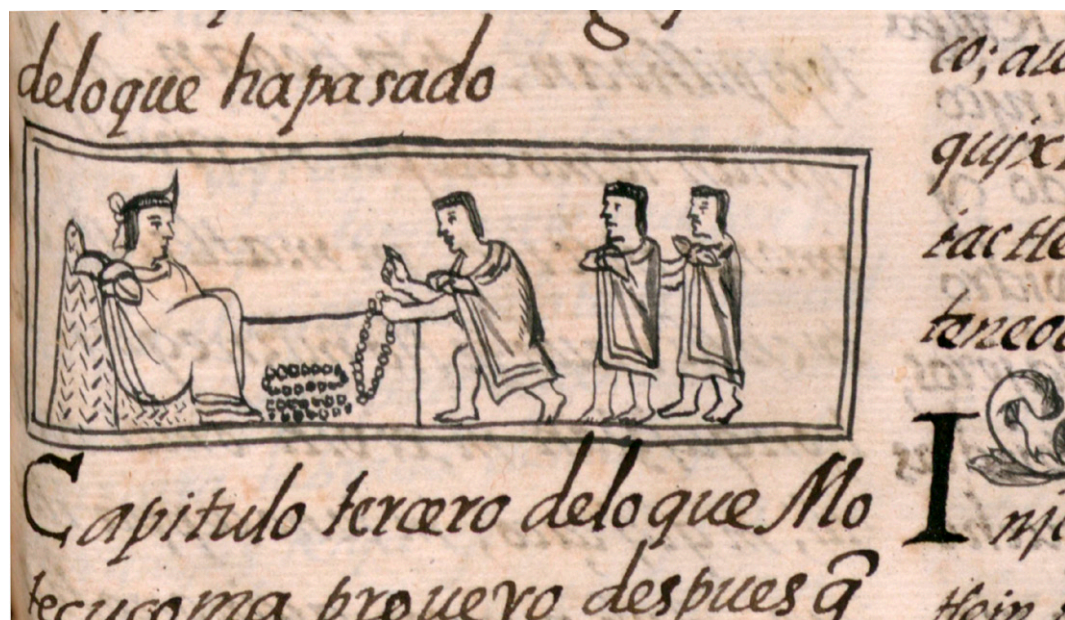 deloque hapasado
Capitulo tercero delo que Mo
tecuçoma proueyo despues q̃
co; au
quijx
tactle
I